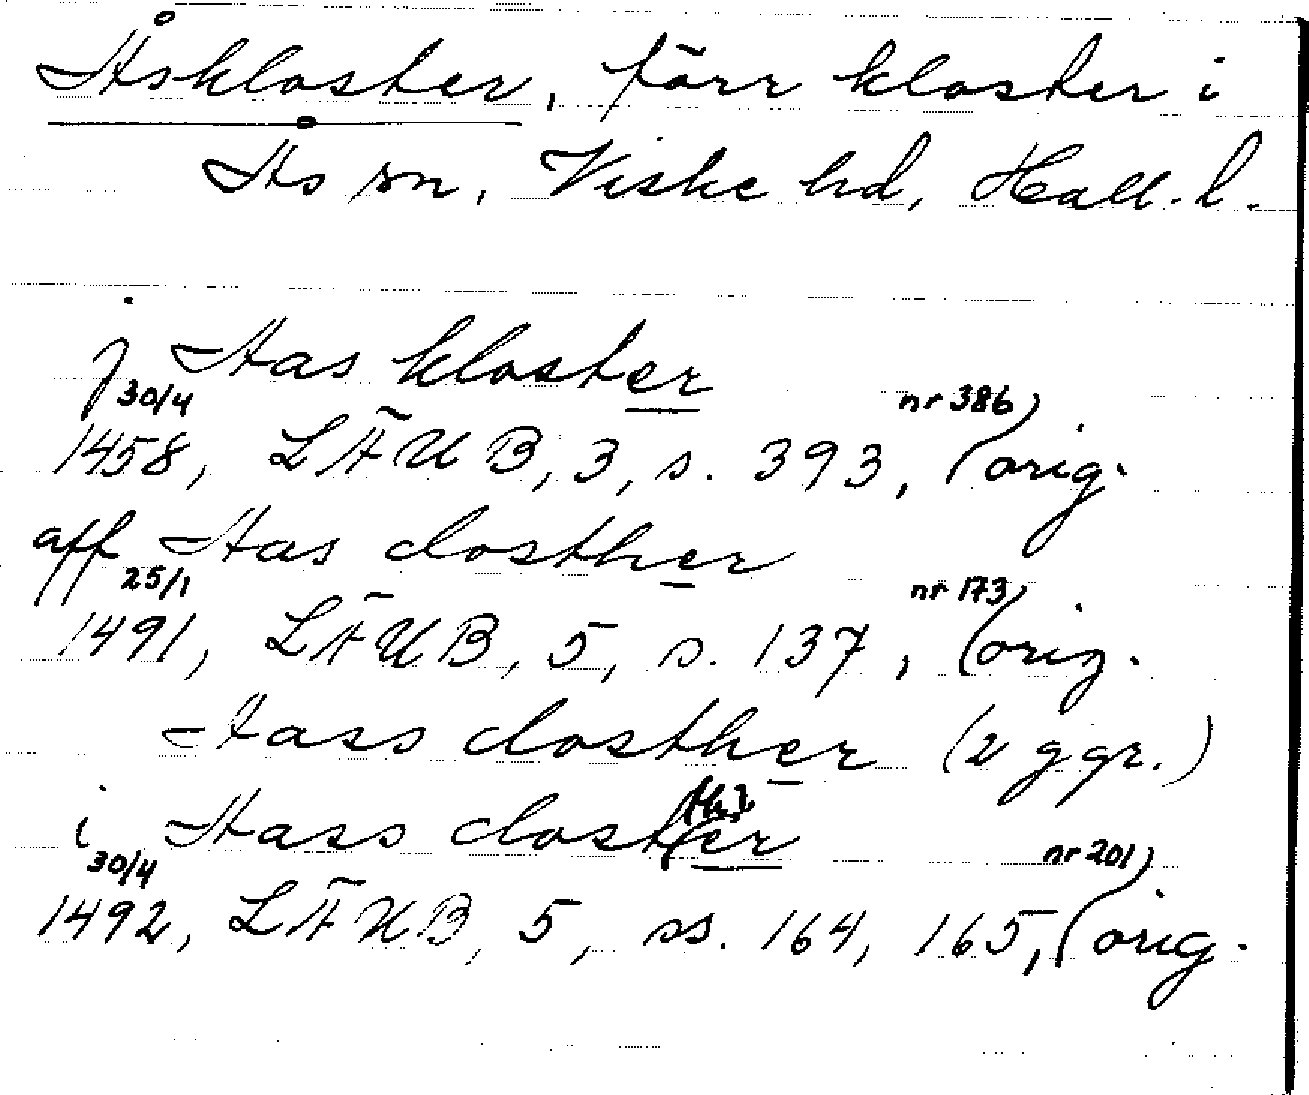 Åskloster, förr kloster i
Ås sn, Viske hd, Hall. l.
j Aas kloster
30/4 nr 386)
1458, LÄUB, 3, s. 393, (orig.
aff Aas closther
25/1 nr 173)
1491, LÄUB, 5, s. 137, (orig.
Aass closther (2 ggr.)
i Aass closter
30/4 nr 201)
1492, LÄUB, 5, ss. 164, 165, (orig.